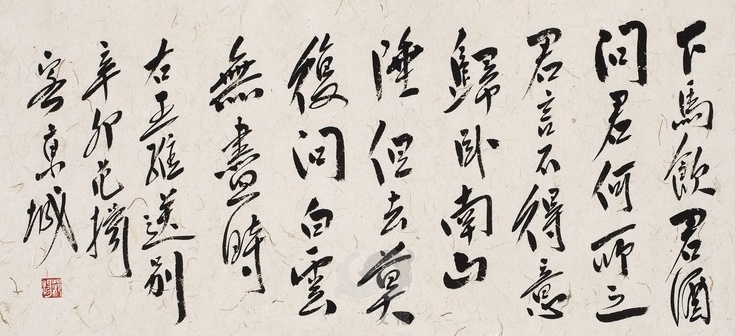 下馬飲君酒
問君何所之
君言不得意
歸臥南山
陲但去莫
復問白雲
無盡時
右王維送別
辛卯范
客東城